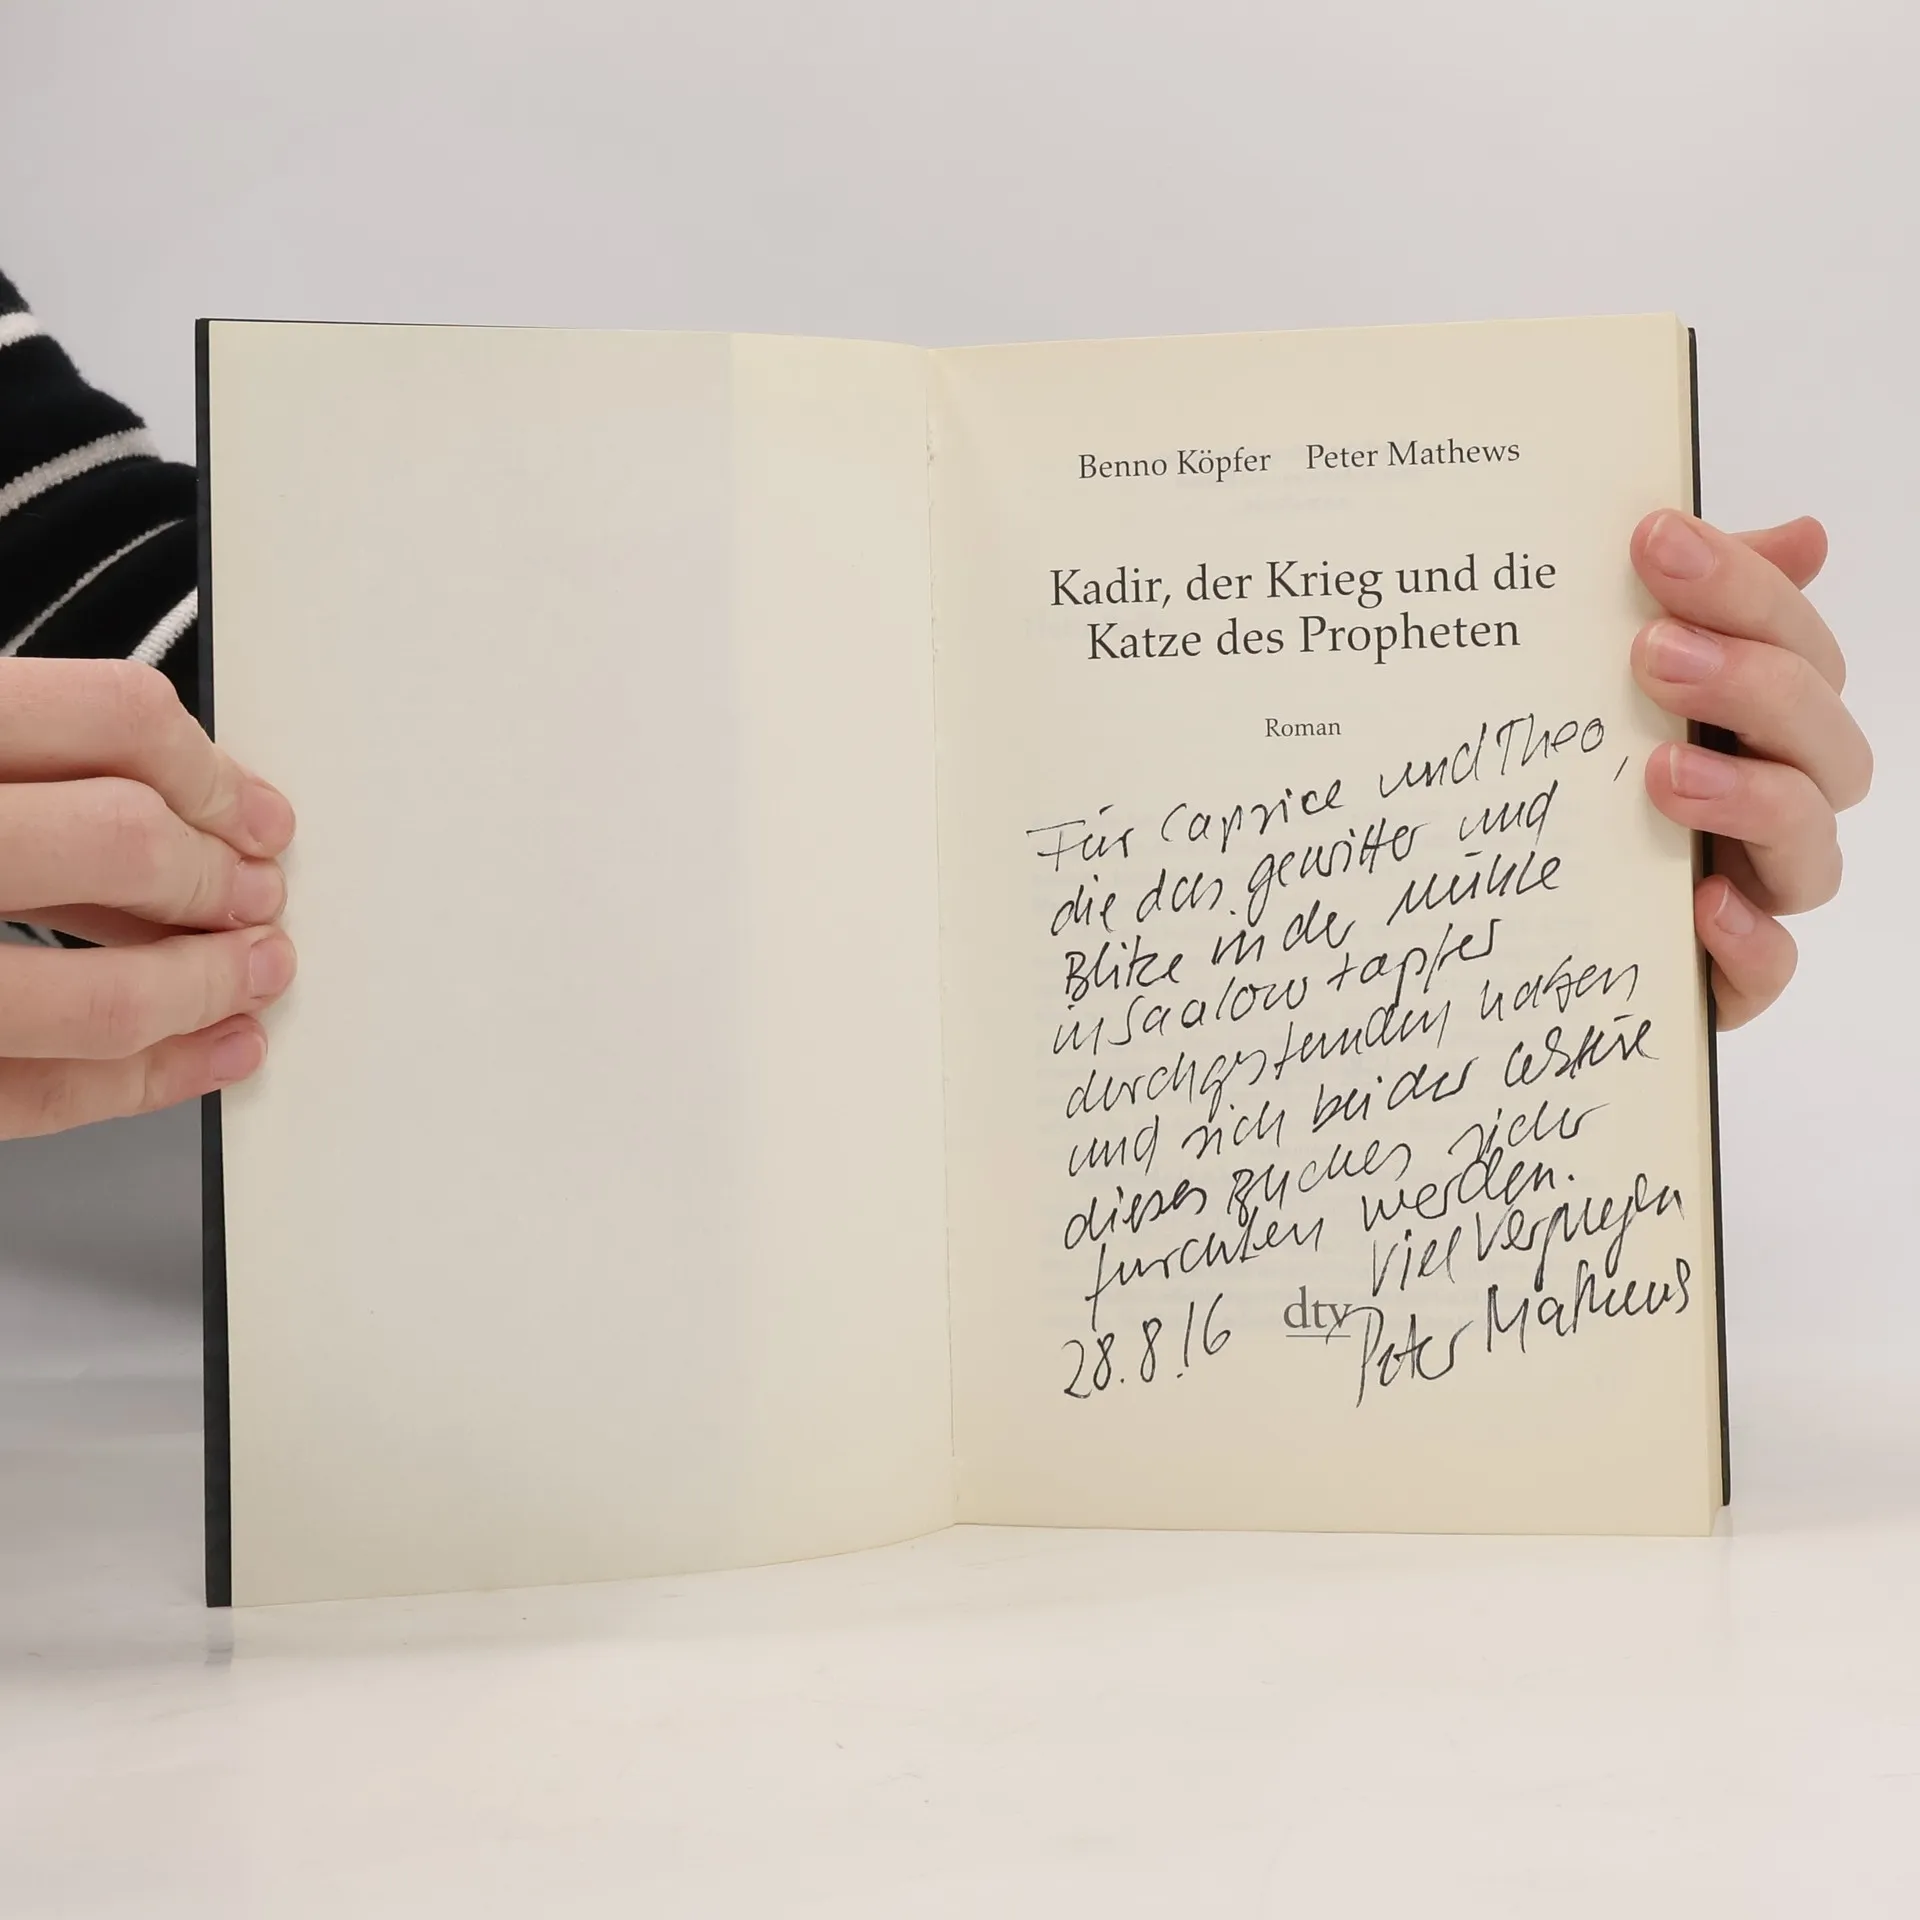 Benno Köpfer Peter Mathews
Kadir, der Krieg und die
Katze des Propheten
Roman
Für Caprice und Theo,
die das gewitter und
Blitze in der Mühle
in Saalow tapfer
durchgestanden haben
und sich bei der Lektüre
dieses Buches sicher
furchten werden.
Viel Vergnügen
dtv Peter Mathews
28.8.16